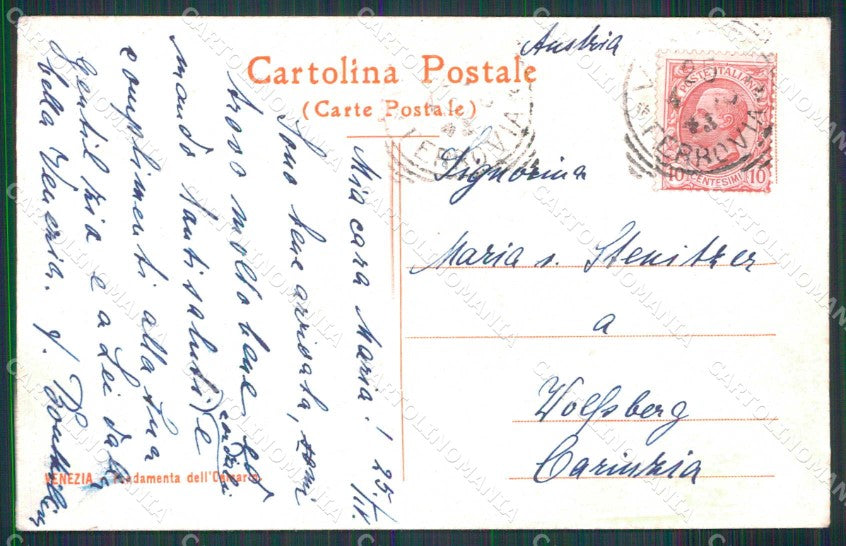 Cartolina Postale
(Carte Postale)
Austria
POSTE ITALIANE
10 CENTESIMI 10
FERROVIA
FERROVIA
Signorina
Maria v. Stenitzer
a
Wolfsberg
Carinzia
Mia cara Maria! 25/
Sono bene arrivata,
trovo molto bene ed
mando tanti saluti e cordiali
complimenti alla Sua
Gentil zia e a Lei dalla
bella Venezia.
VENEZIA - Fondamenta dell'
CARTOLINOMANIA